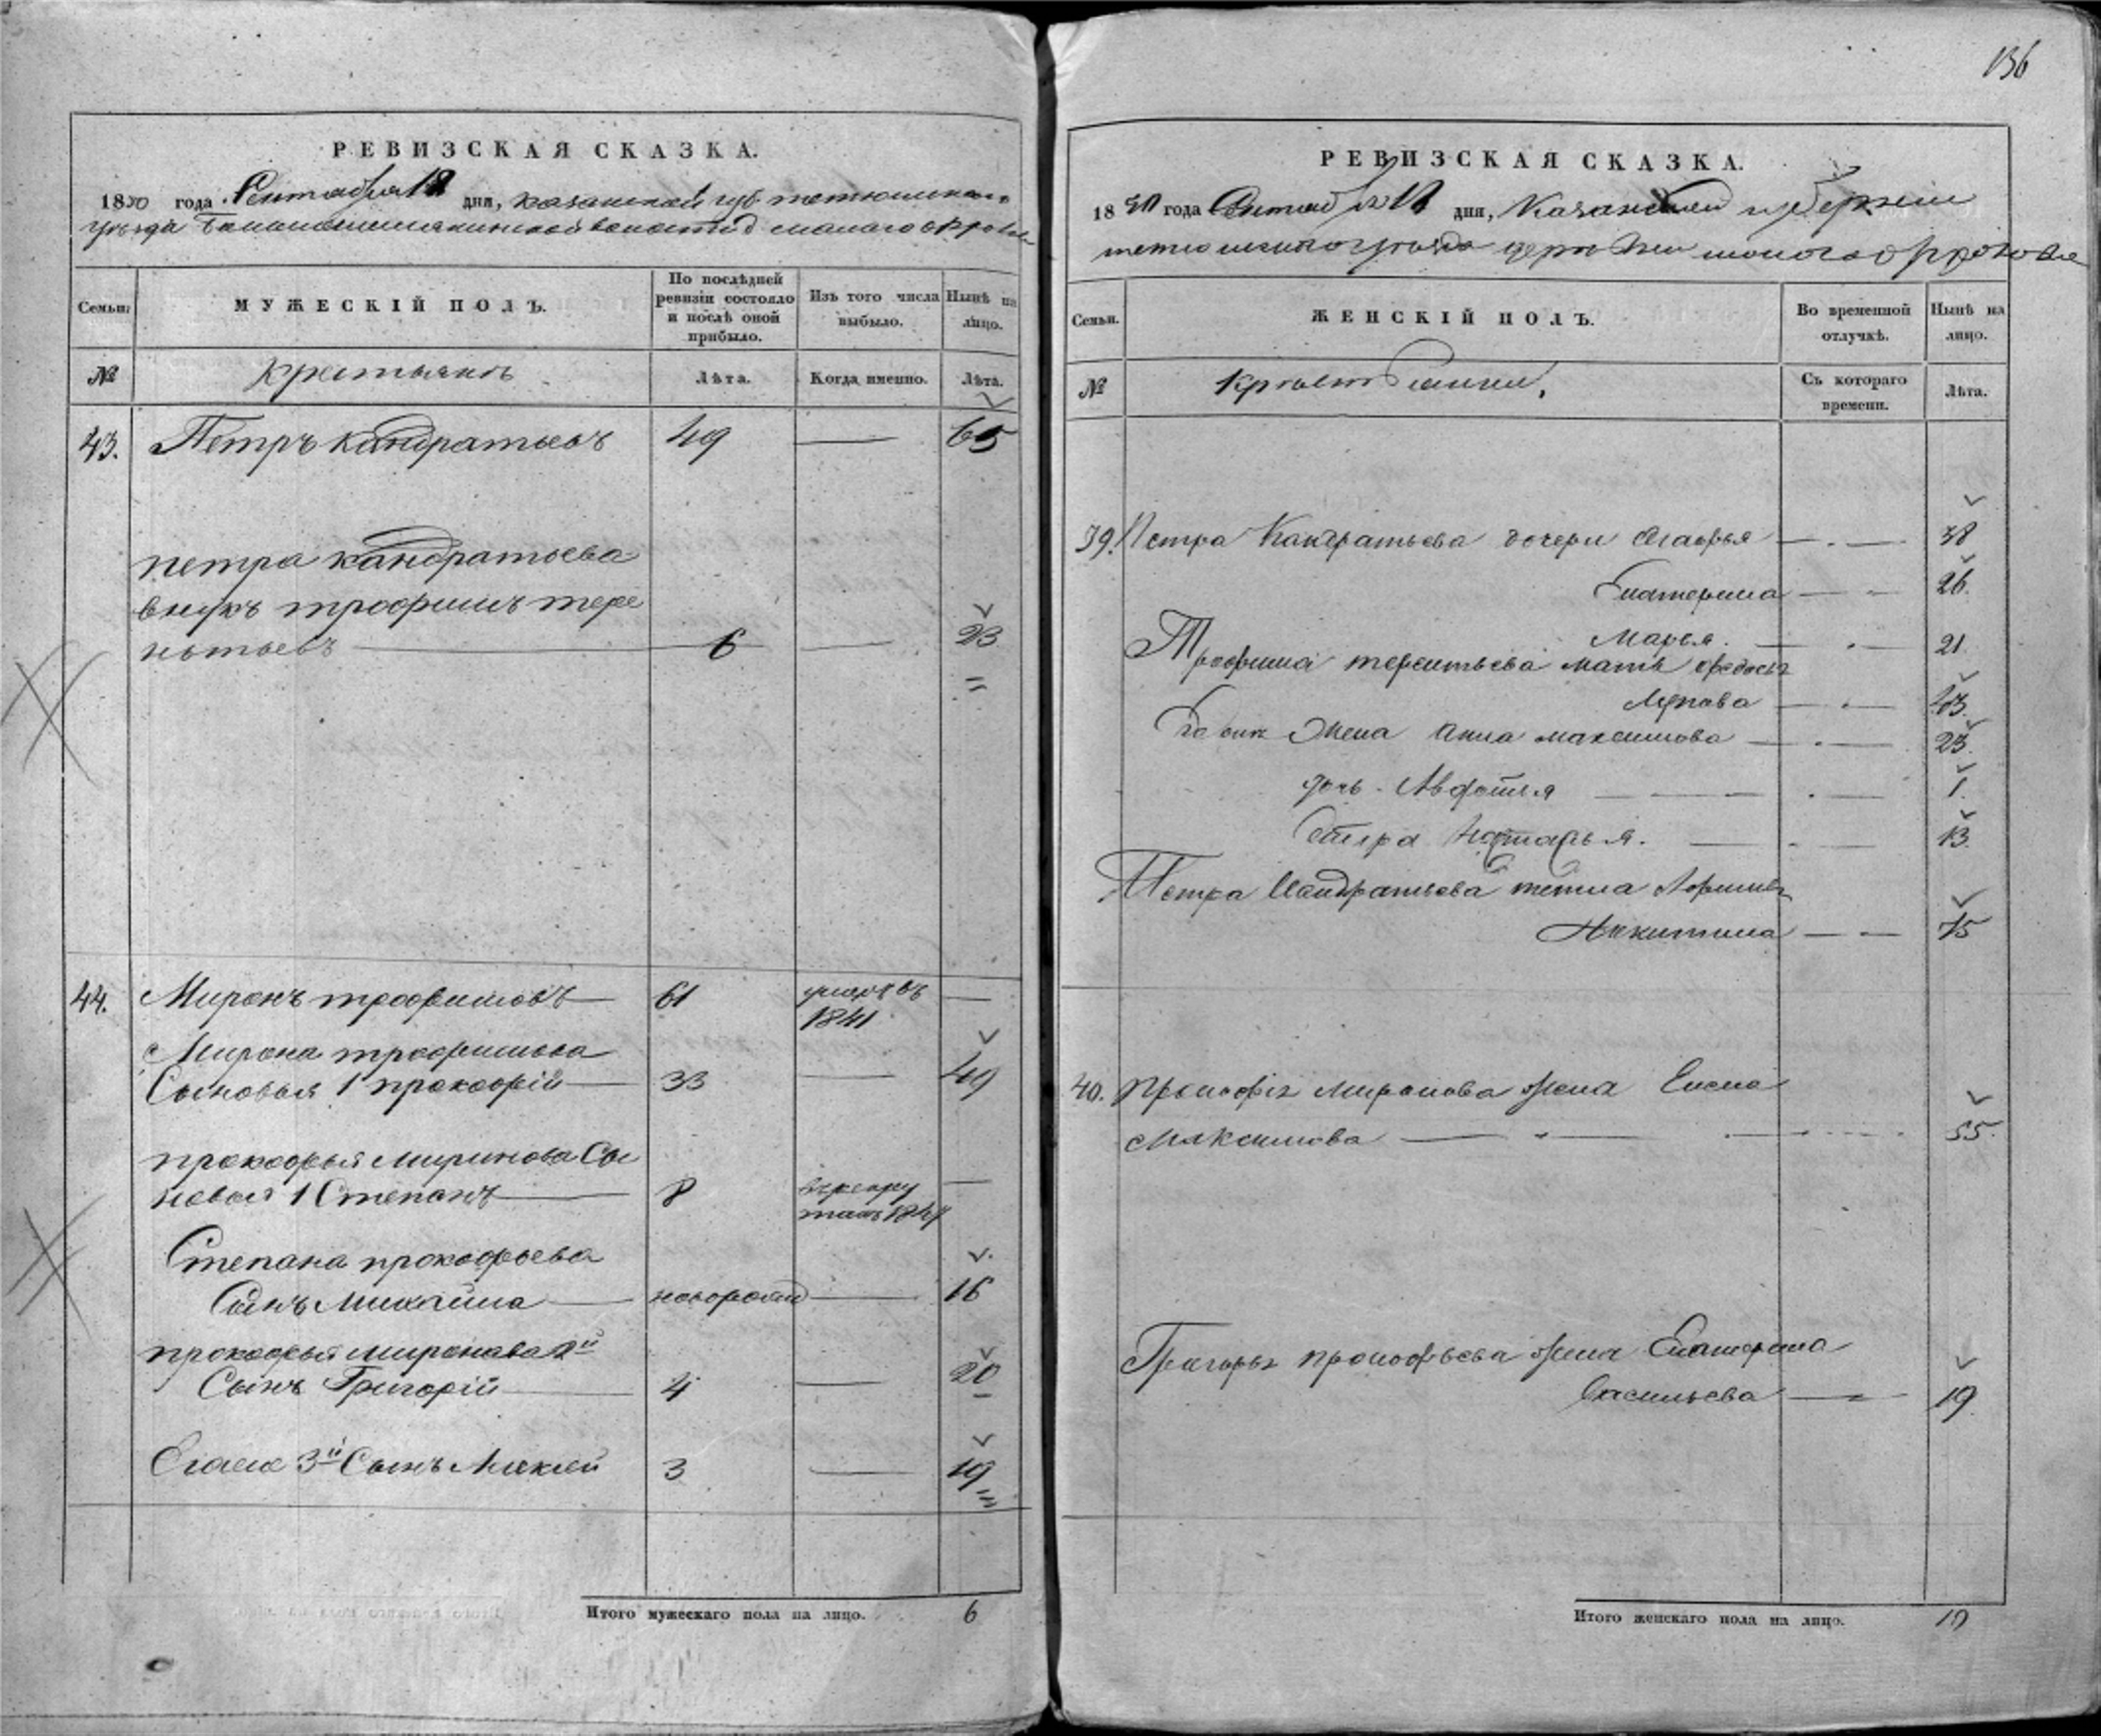 136
РЕВИЗСКАЯ СКАЗКА.
1850 года Сентября 18 дня, казанской губ тетюшского
уезда волости д малаго
Семьи.
МУЖЕСКІЙ ПОЛЪ.
По послѣдней ревизіи состояло и послѣ оной прибыло.
Изъ того числа выбыло.
Нынѣ на лицо.
№
крестьянъ
Лѣта.
Когда именно.
Лѣта.
43. Петръ кандратьевъ 49 — 65
петра кандратьева
внукъ трофимъ тере
нтьевъ — 6 — 23
44. Миронъ трофимовъ — 61 умеръ въ 1841 —
Мирона трофимова
Сыновья 1 прокофій — 33 — 49
прокофья миронова Сы
новья 1 Степанъ — 8 в рекру —
Степана прокофьева
Сынъ Михайла — новорожд — 16
прокофья миронава 2й
Сынъ Григорій — 4 — 20
Егоже 3й Сынъ Алексей 3 — 19
Итого мужескаго пола на лицо. 6
РЕВИЗСКАЯ СКАЗКА.
1850 года Сентября 18 дня, Казанской губерніи
тетюшскаго уезда деревни малого
Семьи.
ЖЕНСКІЙ ПОЛЪ.
Во временной отлучкѣ.
Нынѣ на лицо.
№
Крестьянки,
Съ котораго времени.
Лѣта.
39. Петра Кандратьева дочери Марья — . — 38
Екатерина — — 26.
Марья. — . — 21.
Трофима терентьева мать федосья
— . — 43.
Ево жена Анна максимова — . — 23.
дочь - Авдотья — — — . — 1.
Сестра Наталья. — - — 13.
Петра Кандратьева тетка
Никитина — — 75
40. Прокофья миронова жена Елена
Максимова — 55.
Григорья прокофьева жена Екатерина
Васильева — 19.
Итого женскаго пола на лицо. 10